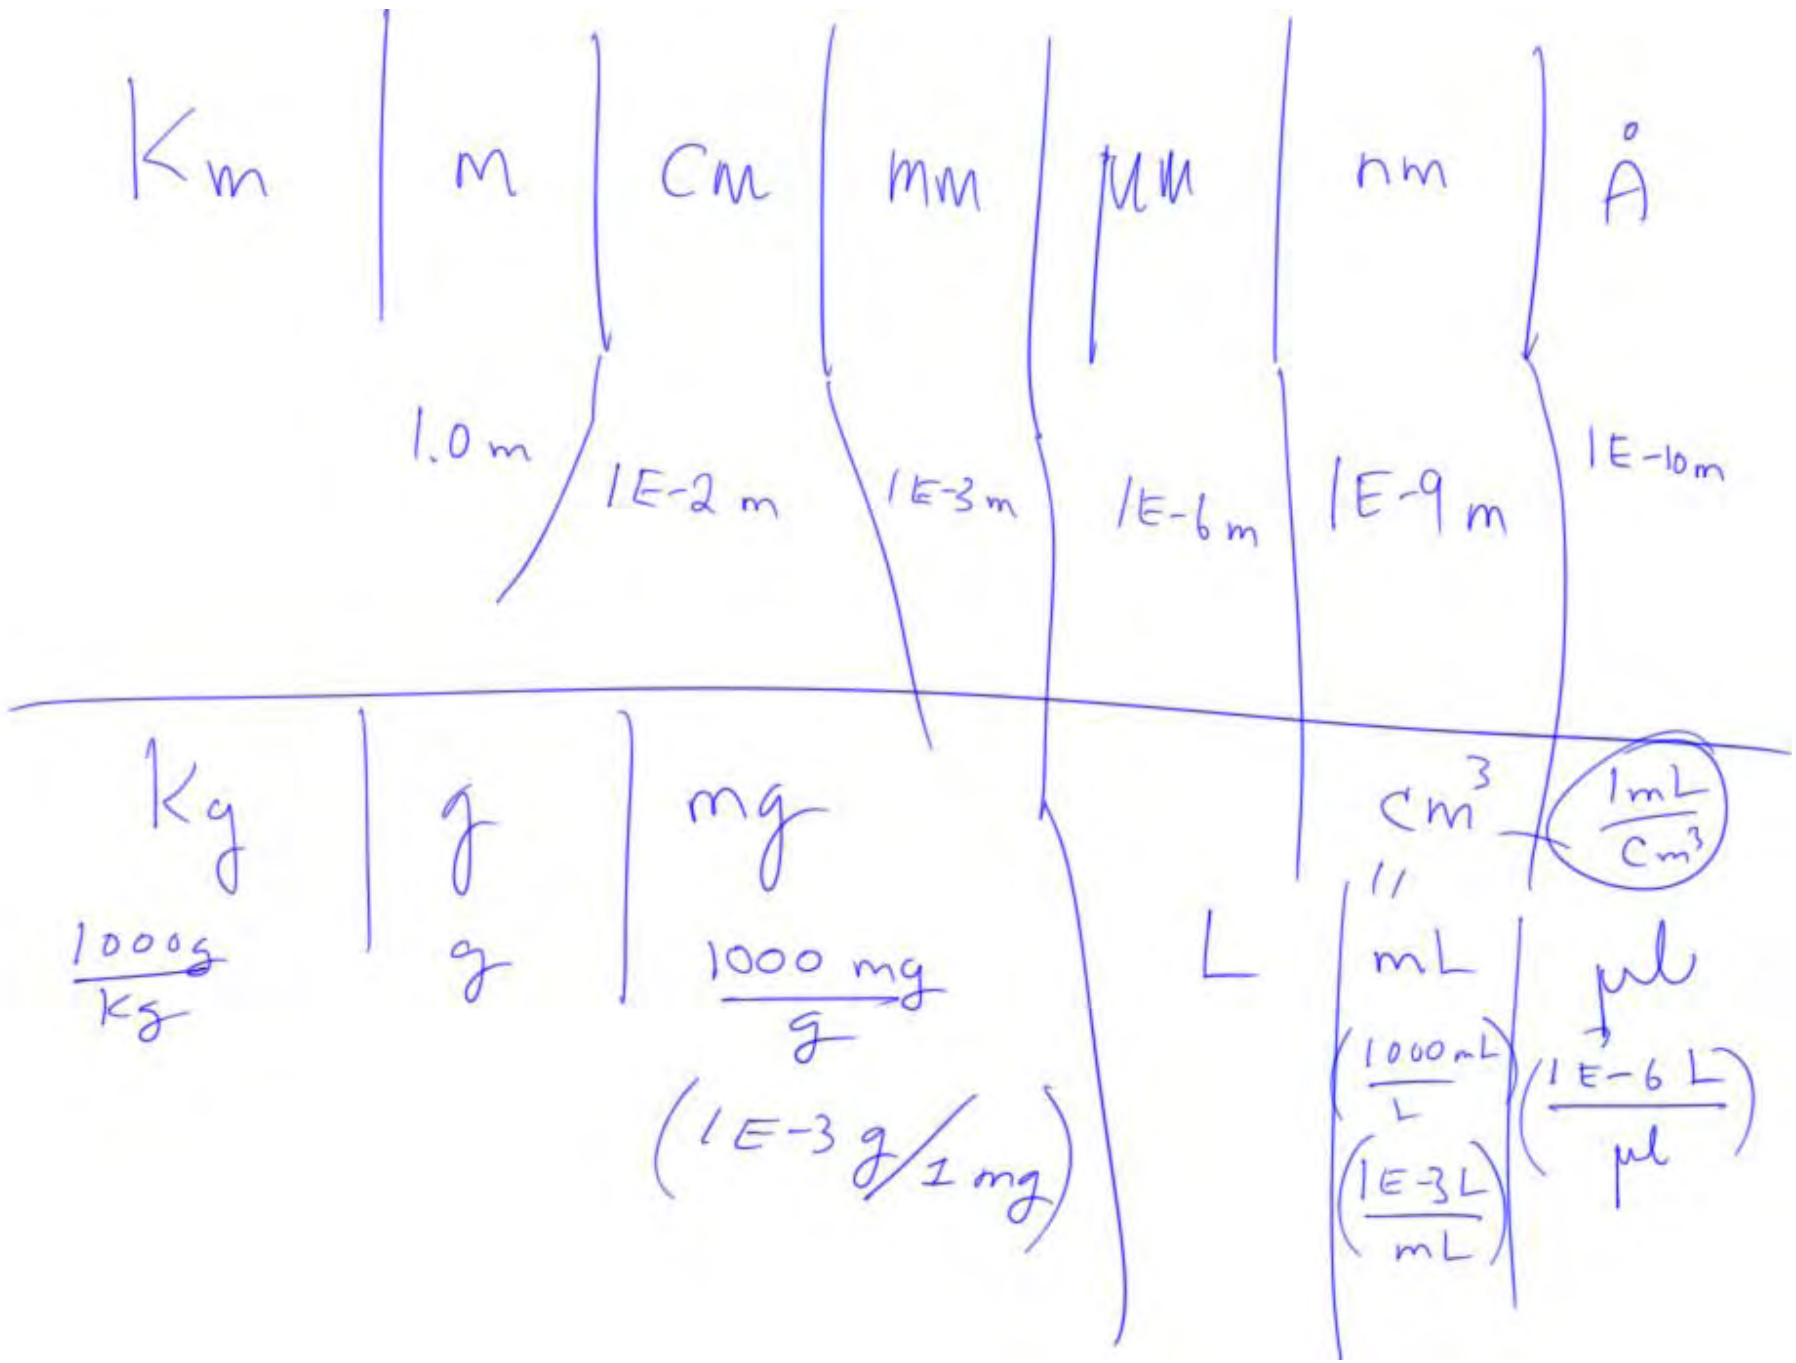 Km m cm mm μm nm Å
1.0 m 1E-2 m 1E-3 m 1E-6 m 1E-9 m 1E-10 m
Kg g mg
1000g
Kg
g
1000 mg
g
(1E-3 g/1 mg)
cm³
1mL
cm³
"
L mL μl
(1000 mL
L)
(1E-3L
mL)
(1E-6 L
μl)